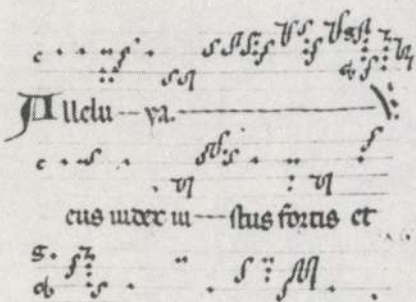 Allelu ya.
eus iudex iu stus fortis et